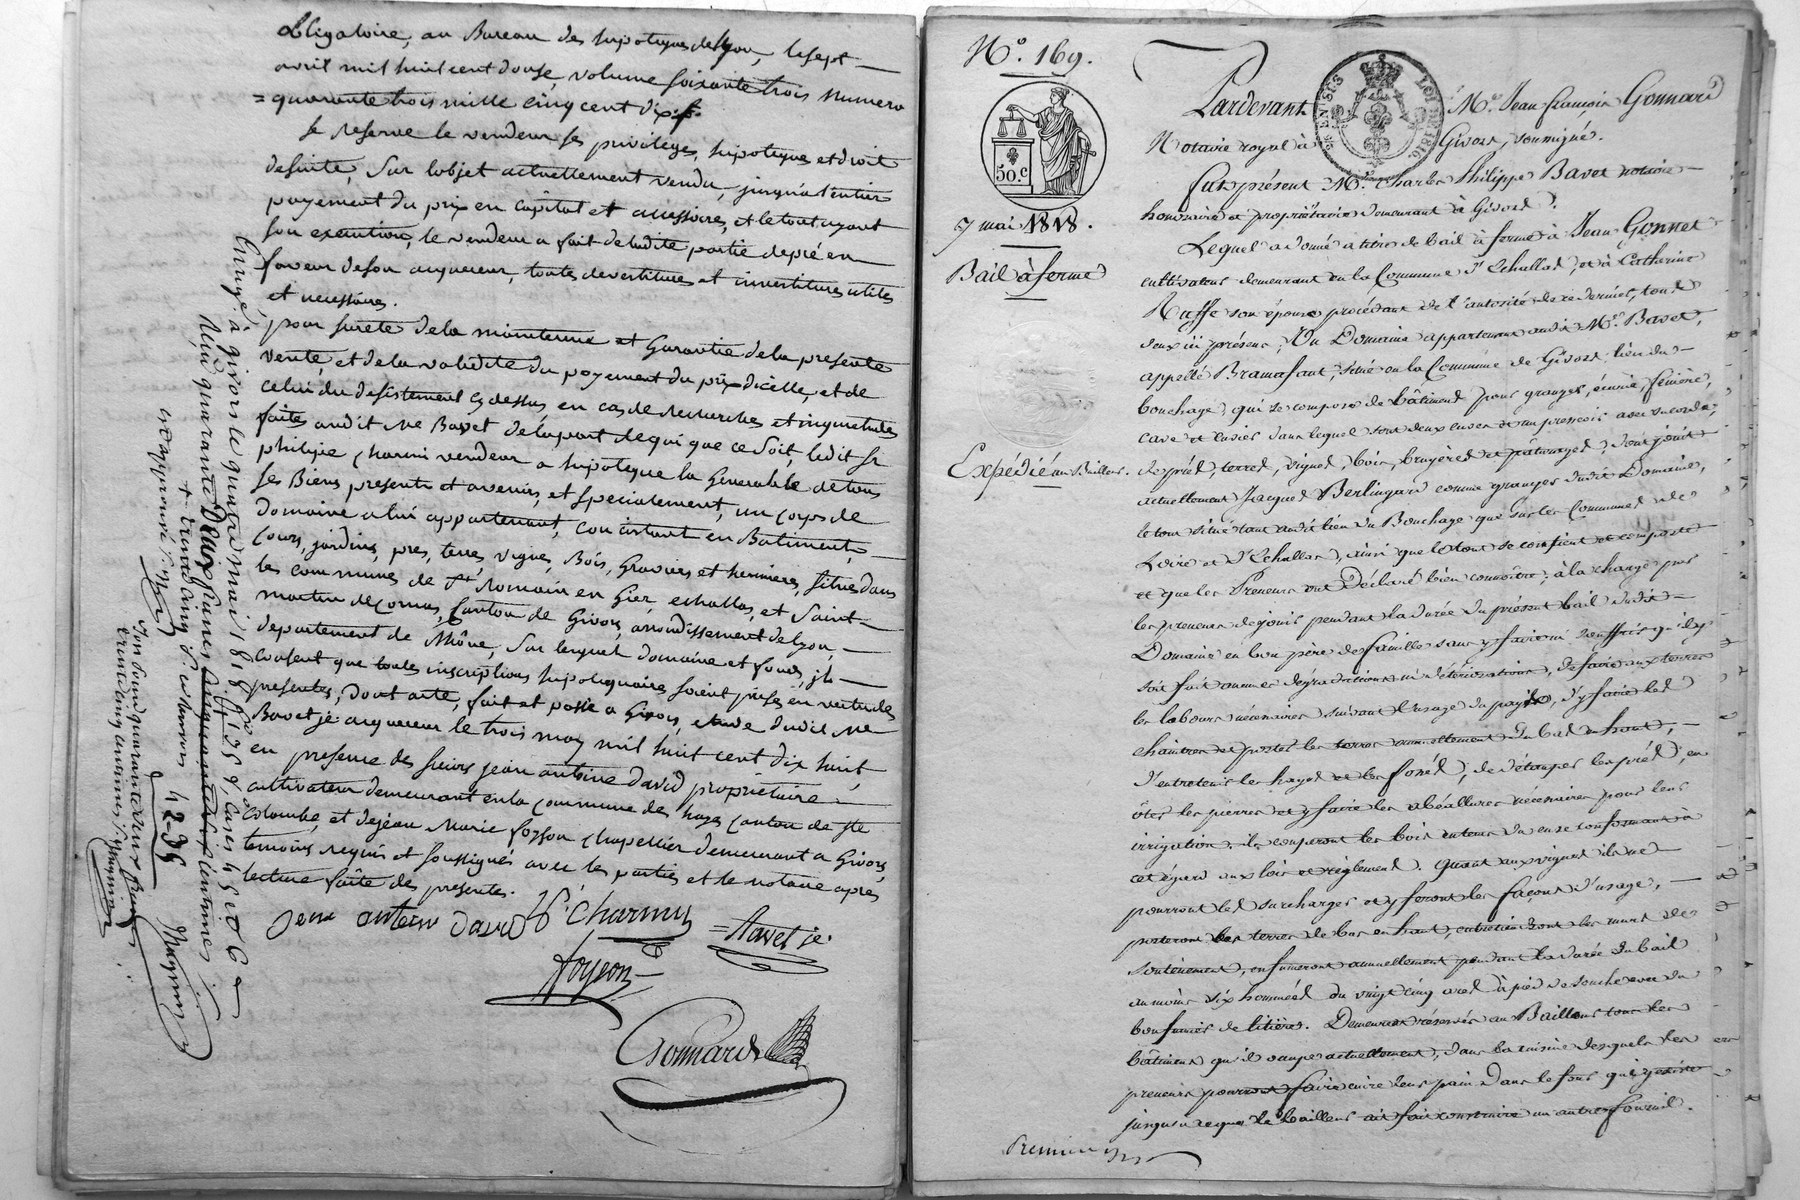 obligatoire, au Bureau des hipoteques de Lyon, le sept
avril mil huit cent douse, volume soixante trois numero
= quarante trois mille cinq cent dix.
se reserve le vendeur ses privileges, hipoteques et droit
de suite, sur l'objet actuellement vendu, jusqu'a l'entier
payement du prix en capital et accessoires, et le tout ayant
son execution, le vendeur a fait de ladite partie de pré en
faveur de son acquereur, toutes devestitures et investitures utiles
et necessaires.
pour sureté de la maintenue et Garantie de la presente
vente, et de la validité du payement du prix d'icelle, et de
celui du desistement cy dessus, en cas de recherches et inquietudes
faites audit Me Bavet de la part de qui que ce soit, ledit sr
philipe Charmi vendeur a hipoteque la Generalité de tous
ses Biens presents et avenir, et specialement, un corps de
domaine a lui appartenant, consistant en Batiments,
cours, jardins, pres, terres, vignes, Bois, Graviers et hermieres, situés dans
les communes de St Romain en Gier, echallas, et Saint
martin de cornas, Canton de Givors, arrondissement de Lyon,
departement du Rhône, sur lesquels domaine et fonds, il
consent que toutes inscriptions hipotequaires soient prises en vertu des
presentes, dont acte, fait et passé a Givors, etude dudit Me
Bavet je acquereur le trois may mil huit cent dix huit,
en presence des sieurs jean antoine david propriétaire
cultivateur demeurant en la commune des hayes canton de Ste
Colombe, et de jean Marie foyson chapellier demeurant a Givors,
temoins requis et soussignés avec les parties et le notaire après
lecture faite des presentes.
Jean antoine david P. Charmy
= Bavet je.
foyson
Gonnard
Enregé. à givors le quatre mai 1818 f° 35 Vo, cases 4 5 et 6
Reçu quarante Deux francs
+ trente cinq
42-35
N°. 169.
50.c
7 mai 1818.
Bail à ferme
Expédié au Bailleur.
Pardevant Me. Jean François Gonnard
Notaire royal à Givors, soussigné.
Fut présent Mr. Charles Philippe Bavet notaire
honoraire et propriétaire demeurant à Givors.
Lequel a donné à titre de bail à ferme à Jean Gonnet
cultivateur demeurant en la Commune d'Echallas, et à Catherine
Ruffe son épouse procédant de l'autorité de ce dernier, tous
deux ici présens, Un Domaine appartenant audit Mr. Bavet,
appellé Bramafant, situé en la Commune de Givors lieu du
bouchage, qui se compose de bâtiment pour granger, écurie, fénière,
cave et cuvier dans lequel sont deux cuves et un pressoir avec sa corde,
de prés, terres, vignes, bois, bruyères et pâturages, dont jouit
actuellement Jacques Berlingard comme granger dudit Domaine,
le tout situé tant audit lieu du Bouchage que sur les Communes de
Loire et d'Echallas, ainsi que le tout se confient et comporte
et que les Preneurs ont Déclaré bien connoître; à la charge par
les preneurs de jouir pendant la durée du présent bail dudit
Domaine en bon père de famille sans y faire ni souffrir qu'il y
soit fait aucunes dégradations ni détériorations, de faire aux terres
les labours nécessaires suivant l'usage du pays, d'y faire les
chaintres et porter les terres annuellement du bas en haut,
d'entretenir les hayes et les fossés, de détauper les prés, en
ôter les pierres et y faire les abéallures nécessaires pour leur
irrigation, ils couperont les bois en tems du en se conformant à
cet égard aux lois et règlement. quant aux vignes ils ne
pourront les surcharger et y feront les façons d'usage,
porteront les terres de bas en haut, entretiendront les murs de
soutènement, enfumeront annuellement pendant la durée du bail
au moins dix hommées ou vingt cinq ares à pied de souche avec du
bon fumier de litière. Demeurent réservés au Bailleur tous les
bâtimens qu'il occupe actuellement, dans la cuisine desquels les
preneurs pourront faire cuire leur pain Dans le four qui y existe
jusqu'à ce que le bailleur ait fait construire un autre fournil.
Premier